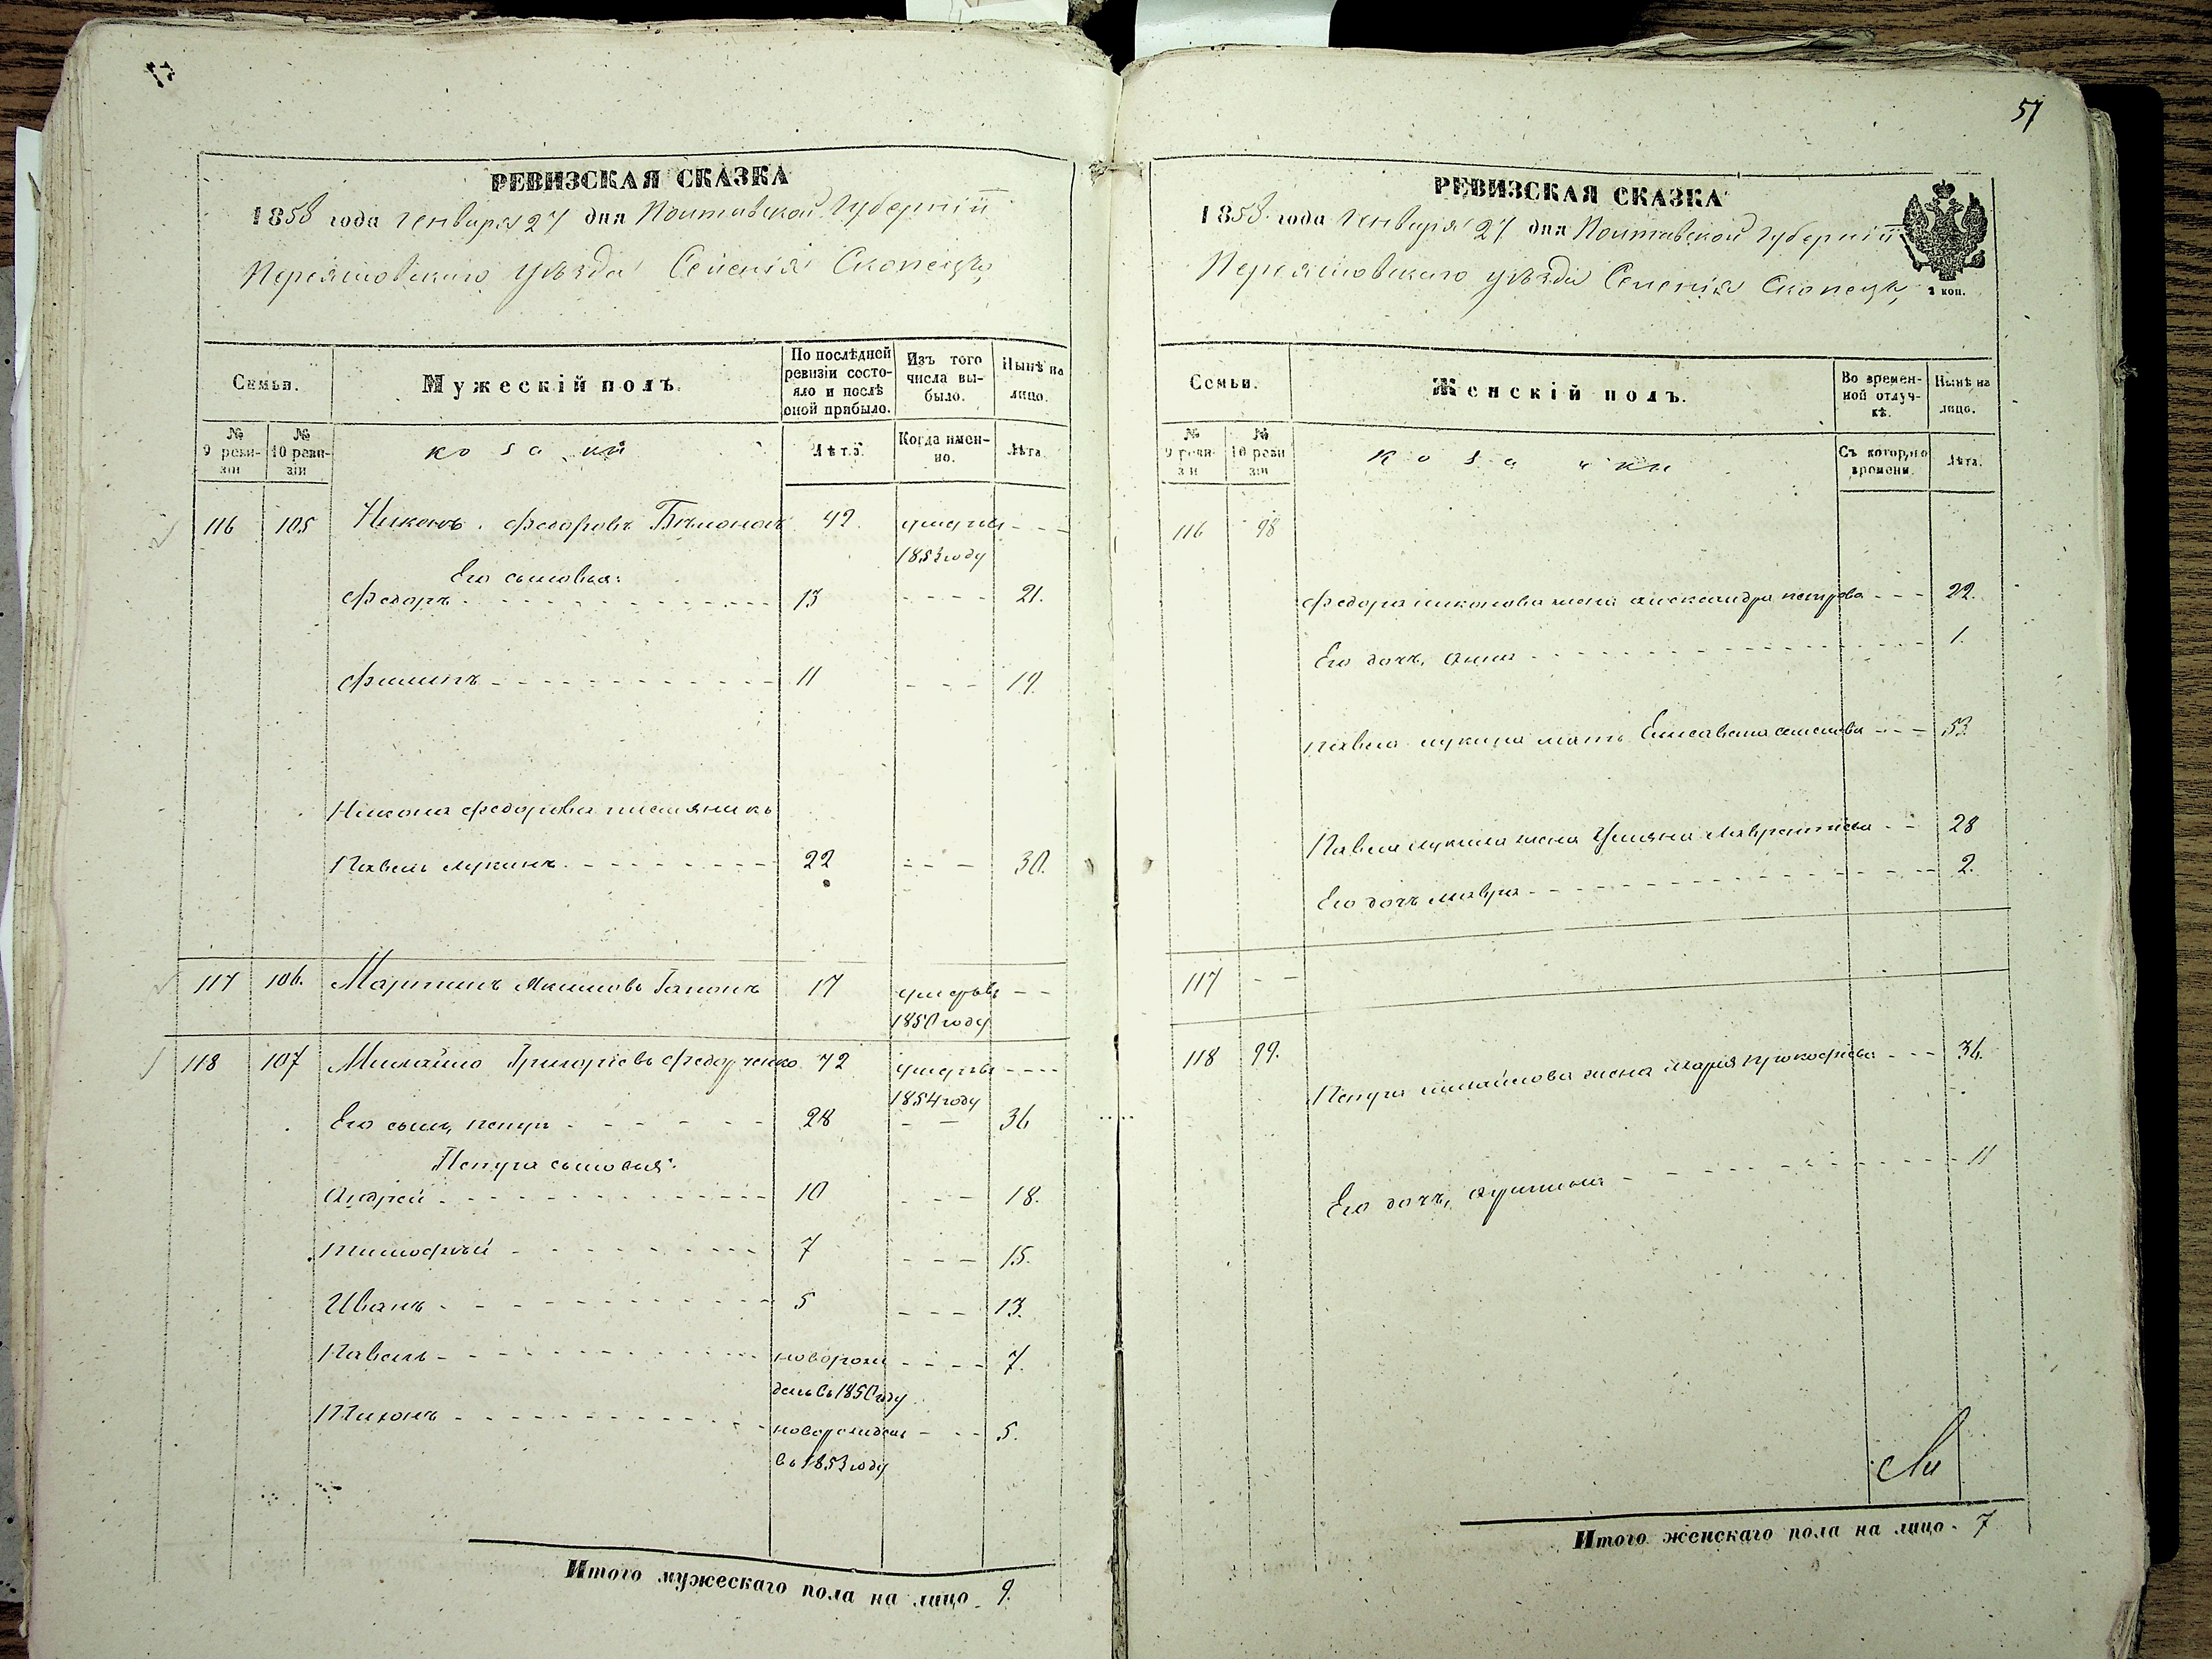 57
РЕВИЗСКАЯ СКАЗКА
1858 года Генваря 27 дня Полтавской Губернiи
Переяславскаго Уѣзда Селенiя Скопецкъ
Семьи.
Мужескiй полъ.
По послѣдней ревизiи состояло и послѣ оной прибыло.
Изъ того числа выбыло.
Нынѣ на лицо.
№ 9 ревизiи
№ 10 ревизiи
козаки
Лѣта.
Когда именно.
Лѣта.
116 105 Никонъ Федоровъ 42 умеръ въ - - -
1853 году
Его сыновья:
Федоръ - - - 13 - - - - 21.
Филипъ - - - 11 - - - 19.
Никона Федорова племяникъ
Павелъ Лукинъ - - - 22 - - - 30.
117 106. Мартинъ Гапонъ 17 умеръ въ - -
1850 году
118 107 Михайло Григорiевъ Федорченко 72 умеръ въ - - - -
1854 году
Его сынъ Петръ - - - 28 - - 36
Петра сыновья:
Андрей - - - 10 - - - 18.
Тимофѣй - - - 7 - - - 15.
Иванъ - - - 5 - - - 13.
Павелъ - - - новорож - - - - 7.
денъ въ 1850 году
Тихонъ - - - новорожденъ - - - 5.
въ 1853 году
Итого мужескаго пола на лицо 9.
57
РЕВИЗСКАЯ СКАЗКА
1858 года Генваря 27 дня Полтавской Губернiи
Переяславскаго уѣзда Селенiя Скопецкъ
2 коп.
Семьи.
Женскiй полъ.
Во временной отлучкѣ.
Нынѣ на лицо.
№ 9 ревизiи
№ 10 ревизiи
козачки
Съ котораго времени.
Лѣта.
116 98
Федора Никонова жена Александра Петрова - - - 22.
Его дочь, Анна - - - 1.
Павла Лукина мать Елисавета - - - 53
Павла Лукина жена Ульяна Лаврентiева - - 28
Его дочь Мавра - - - 2.
117 - -
118 99.
Петра Михайлова жена Марiя Прокофiева - - - 36.
Его дочь, - - - 11
Итого женскаго пола на лицо. 7